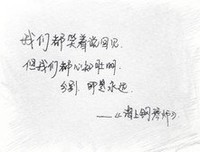 我们都笑着说再见,
但我们都心知肚明,
分别,即是永远.
——《海上钢琴师》